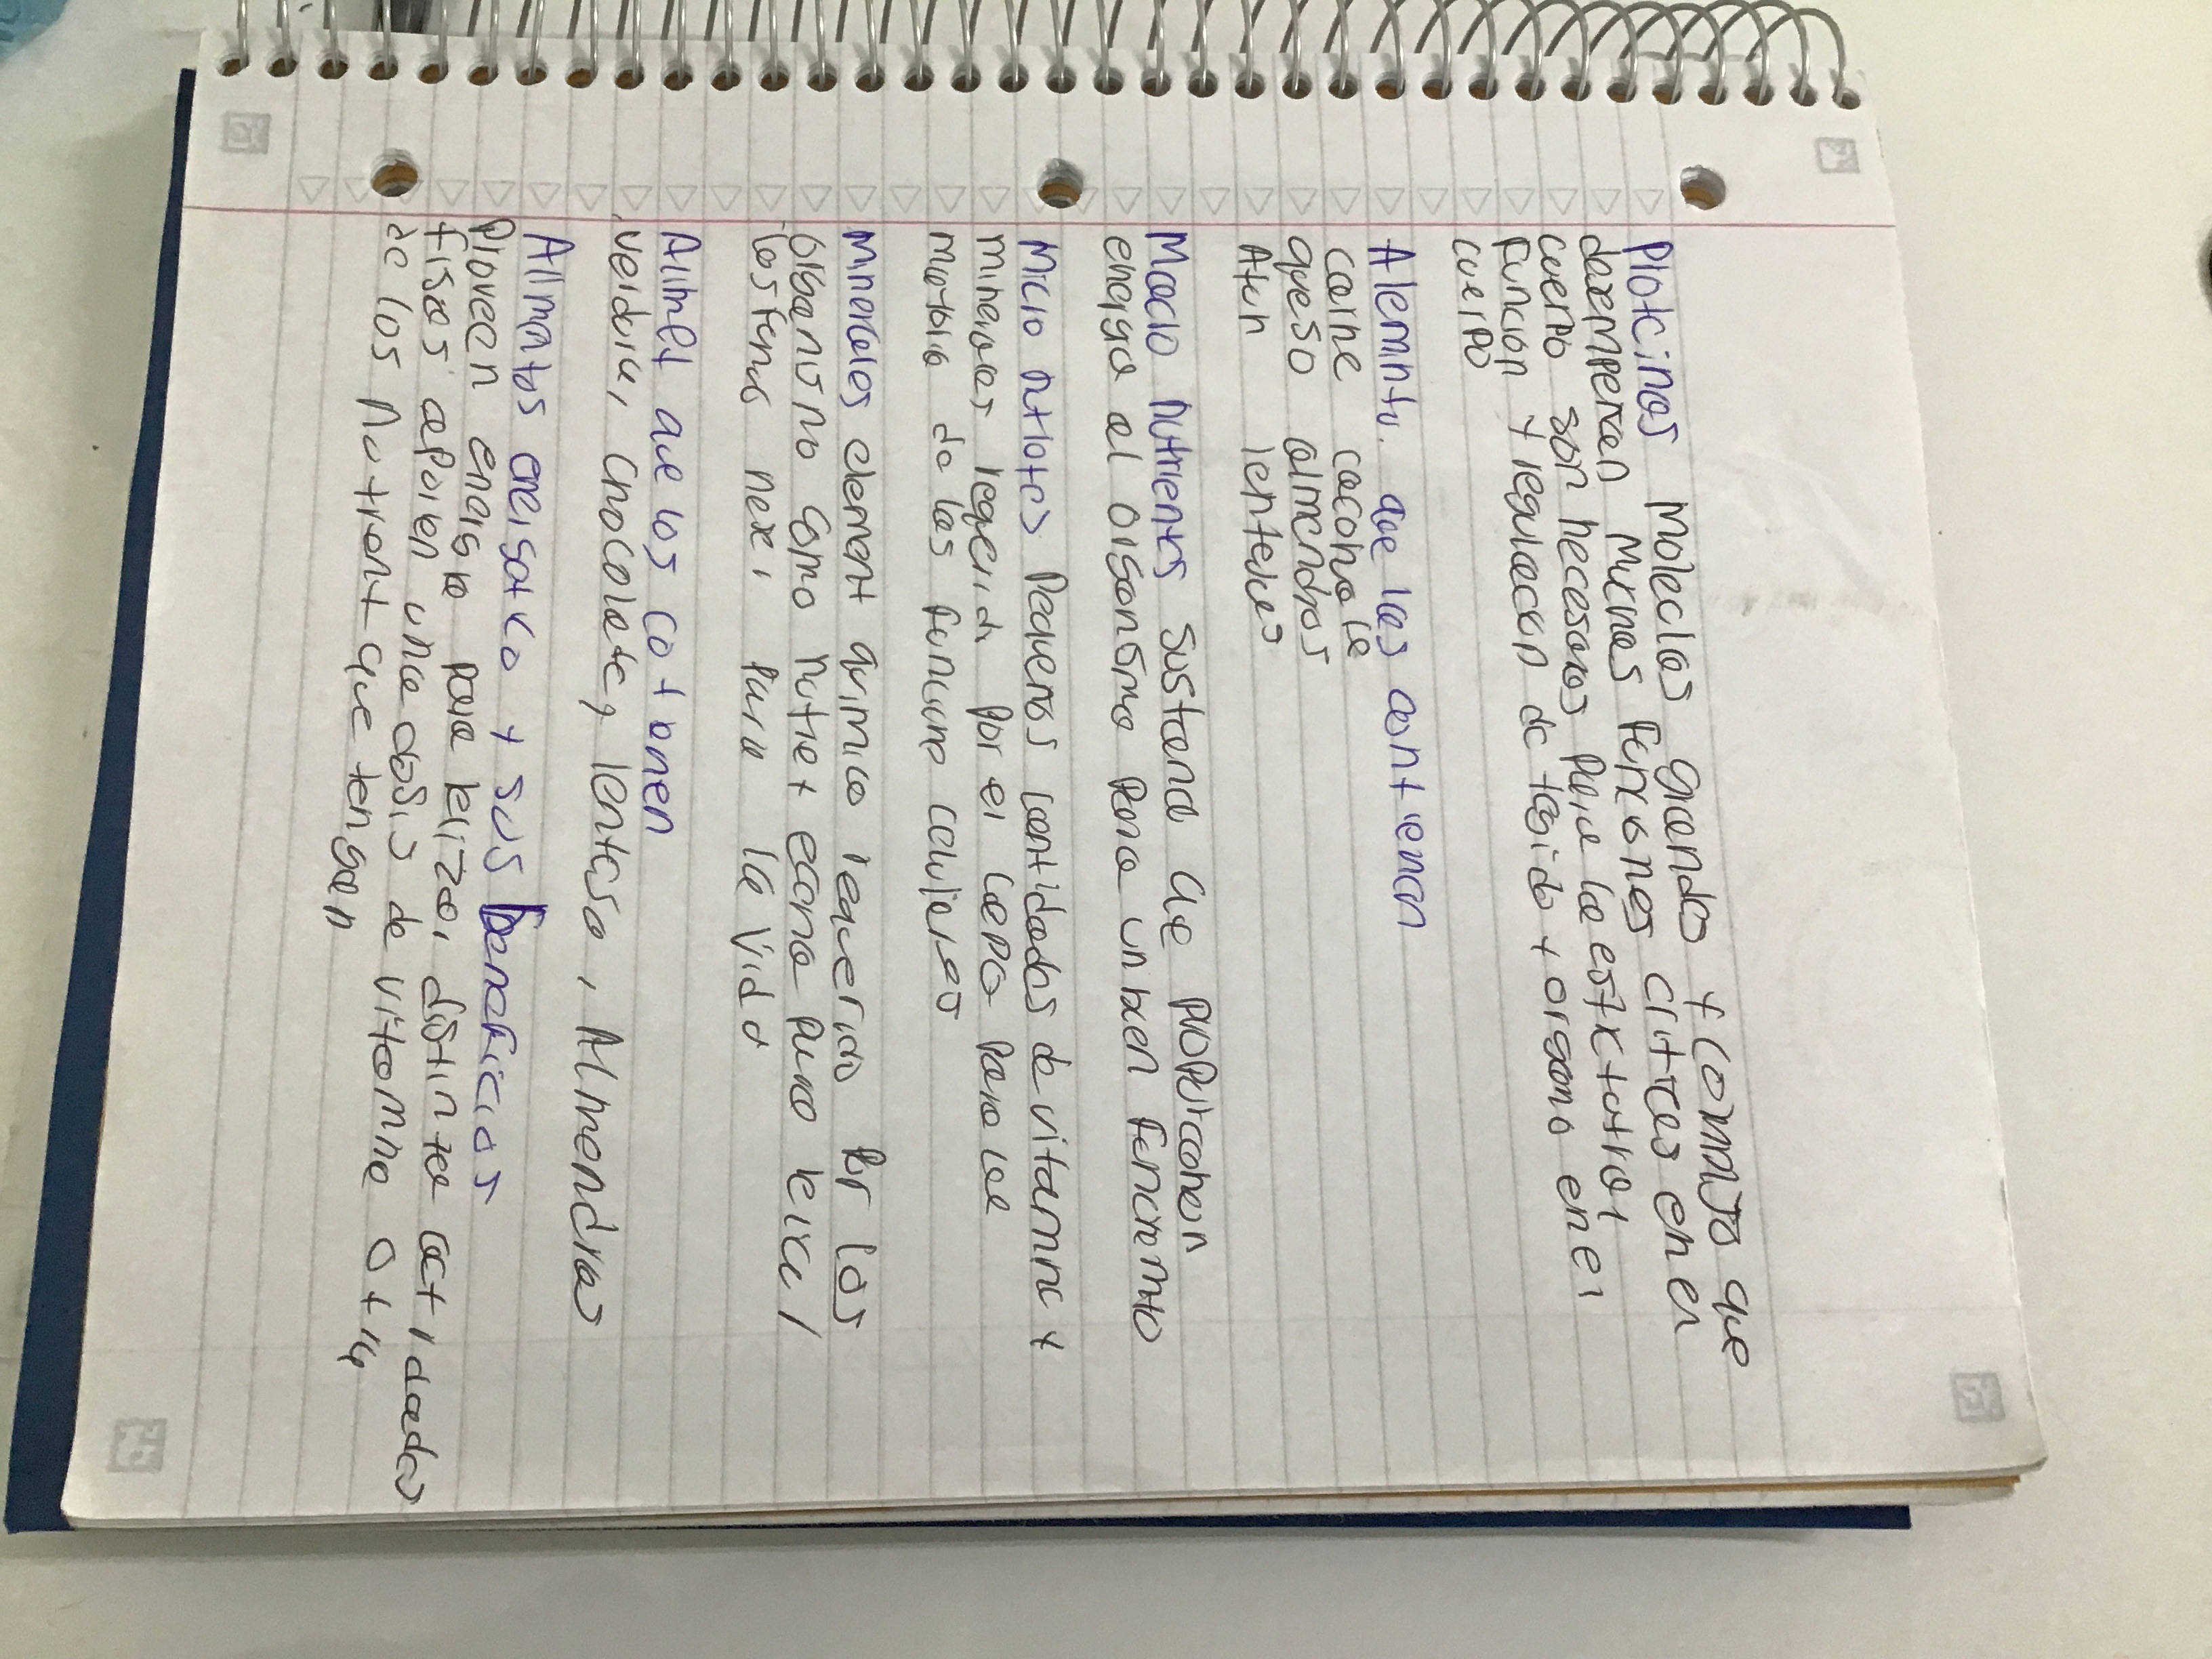 Ploteinas Moleclas grandos y comnjos que
daxempeñan Muchas Funxiones criticas en el
cuerpo son necesarias para la estrxtutrai
Funcion y regulacion de tesido y organo en el
cuerpo
Alemintu. que las contienen
carne cacahate
queso almendras
Atun lentejas
Macro nutrientes Sustancia que proporcionan
energia al organismo para un buen
Micro Pequeñas cantidades de vitamina y
minerales por el para la
de las celulares
Minerales element quimico requerido por los
organismo como para
la Vida
Aliment que los contienen
verdura, chocolate, lentesa, Almendras
Alimatos energatico y sus Beneficios
Proveen energia para distintas actidades
fisas aportan una dosis de vitamina
de los Nutrient que tengan